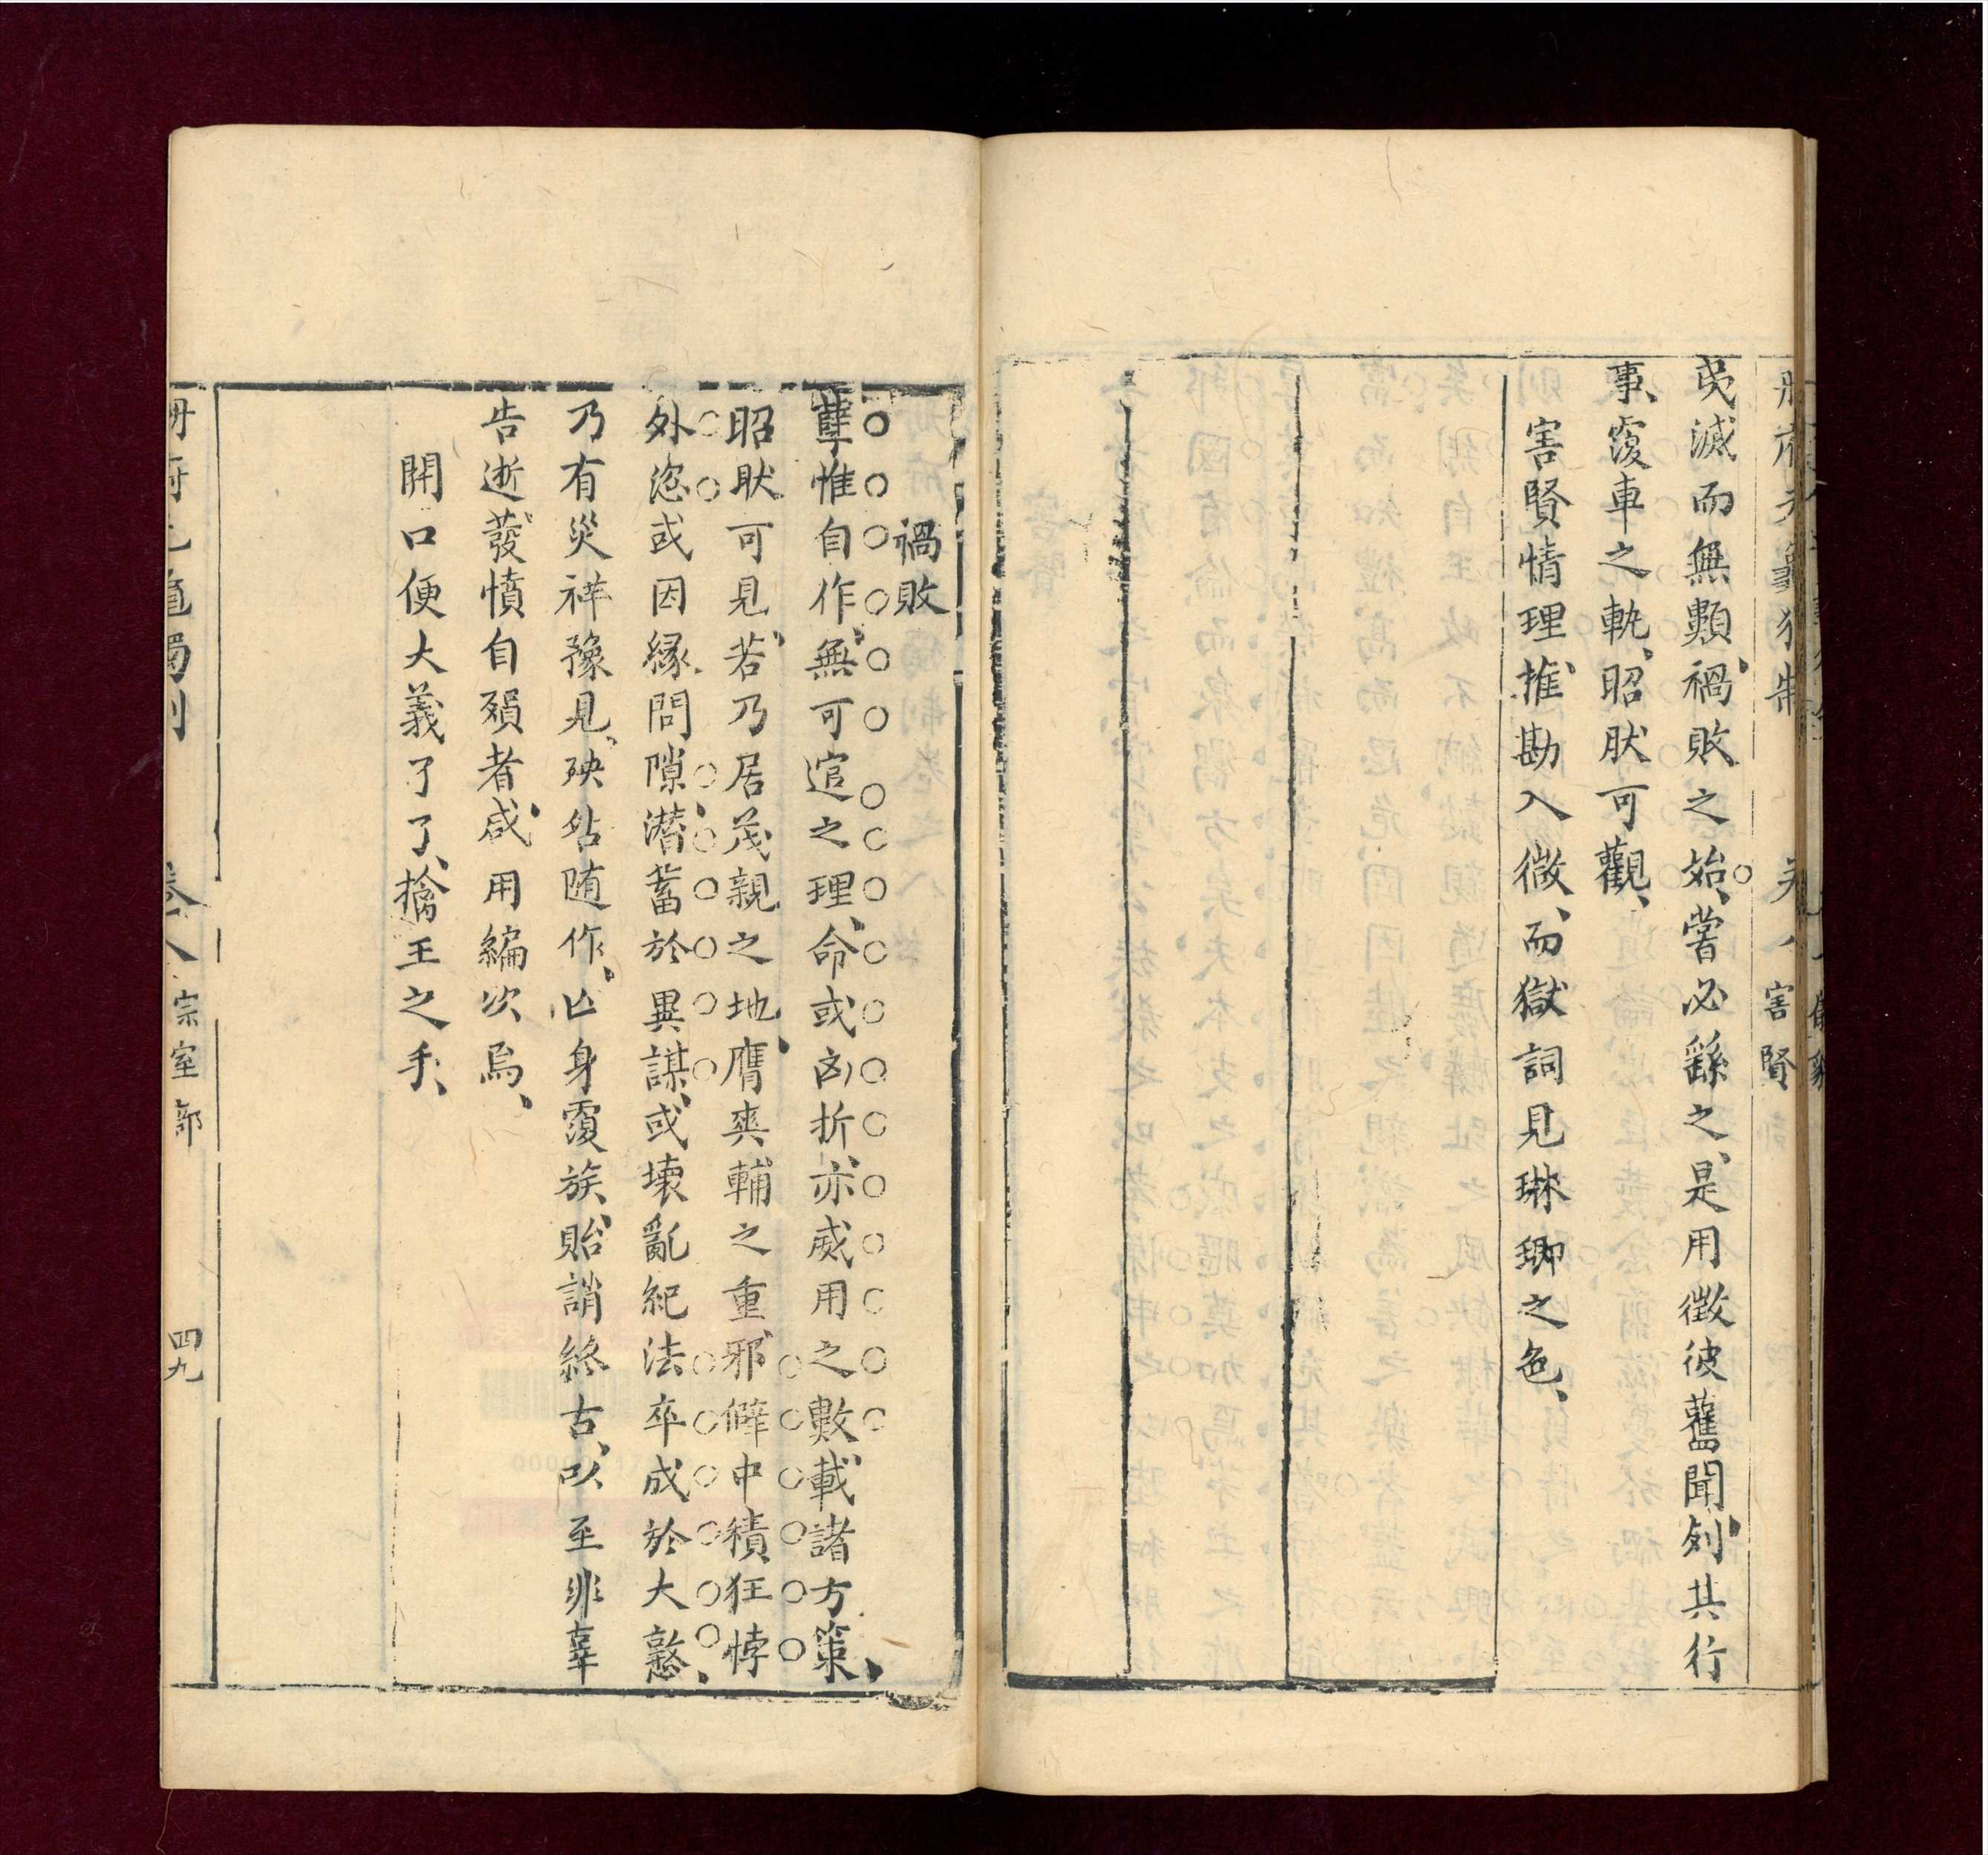 夷滅而無類禍敗之始、嘗必繇之、是用徵彼舊聞、列其行
事、覆車之軌、昭然可觀、
害賢情理推勘入微、而獄詞見琳瑯之色、
卷八 害賢
禍敗
孽惟自作、無可逭之理、命或凶折、亦威用之數、載諸方策、
昭然可見、若乃居茂親之地、膺夾輔之重、邪僻中積、狂悖
外恣、或因緣間隙、潜蓄於異謀、或壞亂紀法、卒成於大憝、
乃有災祥豫見、殃咎随作、亡身覆族、貽誚終古、以至非辜
告逝、發憤自殞者、咸用編次焉、
開口便大義了了、擒王之手、
冊府元龜獨制 卷八 宗室部 四九